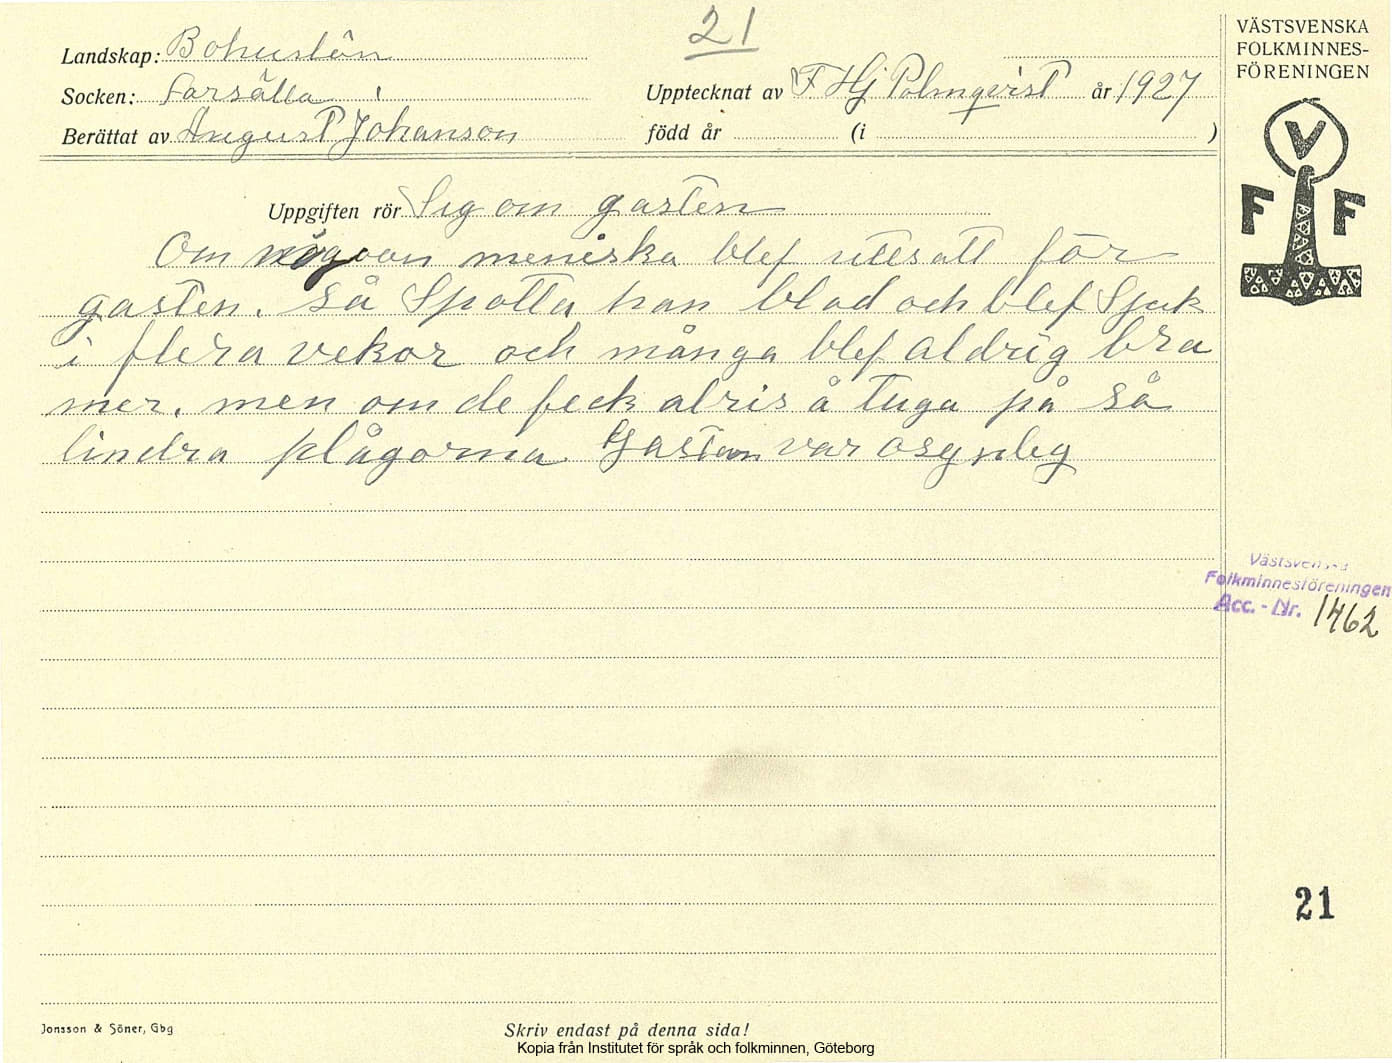 21
VÄSTSVENSKA
FOLKMINNES-
FÖRENINGEN
V
F F
Landskap: Bohuslän
Socken: Forsälla Upptecknat av F Hj Palmqvist år 1927
Berättat av August Johanson född år (i )
Uppgiften rör Seg om gasten
Om någoon meniska blef uttsatt för
gasten. så Spotta han blod och blef Sjuk
i flera vekor och många blef aldrig bra
mer. men om de feck alris å tuga på så
lindra plågorna Gasten var osynleg
Västsvenska
Folkminnesföreningen
Acc. - Nr. 1462
21
Jonsson & Söner, Gbg
Skriv endast på denna sida!
Kopia från Institutet för språk och folkminnen, Göteborg